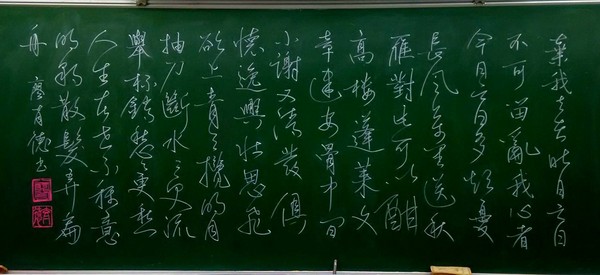 棄我去者昨日之日
不可留亂我心者
今日之日多煩憂
長風萬里送秋
雁對此可以酣
高樓蓬萊文
章建安骨中間
小謝又清發俱
懷逸興壯思飛
欲上青天攬明月
抽刀斷水水更流
舉杯銷愁愁更愁
人生在世不稱意
明朝散髮弄扁
舟 廖